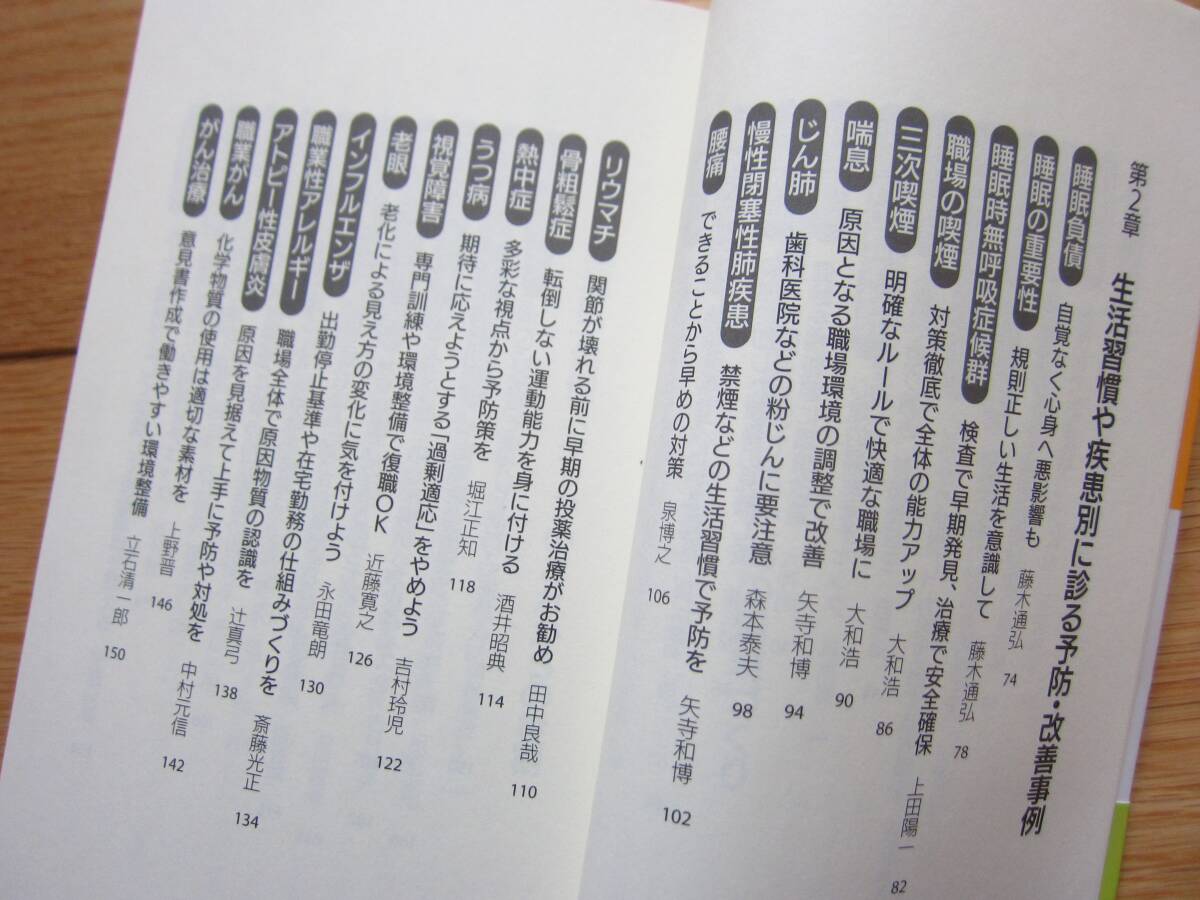 第2章 生活習慣や疾患別に診る予防・改善事例
睡眠負債 自覚なく心身へ悪影響も 藤木通弘 74
睡眠の重要性 規則正しい生活を意識して 藤木通弘 78
睡眠時無呼吸症候群 検査で早期発見、治療で安全確保 上田陽一 82
職場の喫煙 対策徹底で全体の能力アップ 大和浩 86
三次喫煙 明確なルールで快適な職場に 大和浩 90
喘息 原因となる職場環境の調整で改善 矢寺和博 94
じん肺 歯科医院などの粉じんに要注意 森本泰夫 98
慢性閉塞性肺疾患 禁煙などの生活習慣で予防を 矢寺和博 102
腰痛 できることから早めの対策 泉博之 106
リウマチ 関節が壊れる前に早期の投薬治療がお勧め 田中良哉 110
骨粗鬆症 転倒しない運動能力を身に付ける 酒井昭典 114
熱中症 多彩な視点から予防策を 堀江正知 118
うつ病 期待に応えようとする「過剰適応」をやめよう 吉村玲児 122
視覚障害 専門訓練や環境整備で復職OK 近藤寛之 126
老眼 老化による見え方の変化に気を付けよう 永田竜朗 130
インフルエンザ 出勤停止基準や在宅勤務の仕組みづくりを 斎藤光正 134
職業性アレルギー 職場全体で原因物質の認識を 辻真弓 138
アトピー性皮膚炎 原因を見据えて上手に予防や対処を 中村元信 142
職業がん 化学物質の使用は適切な素材を 上野晋 146
がん治療 意見書作成で働きやすい環境整備 立石清一郎 150